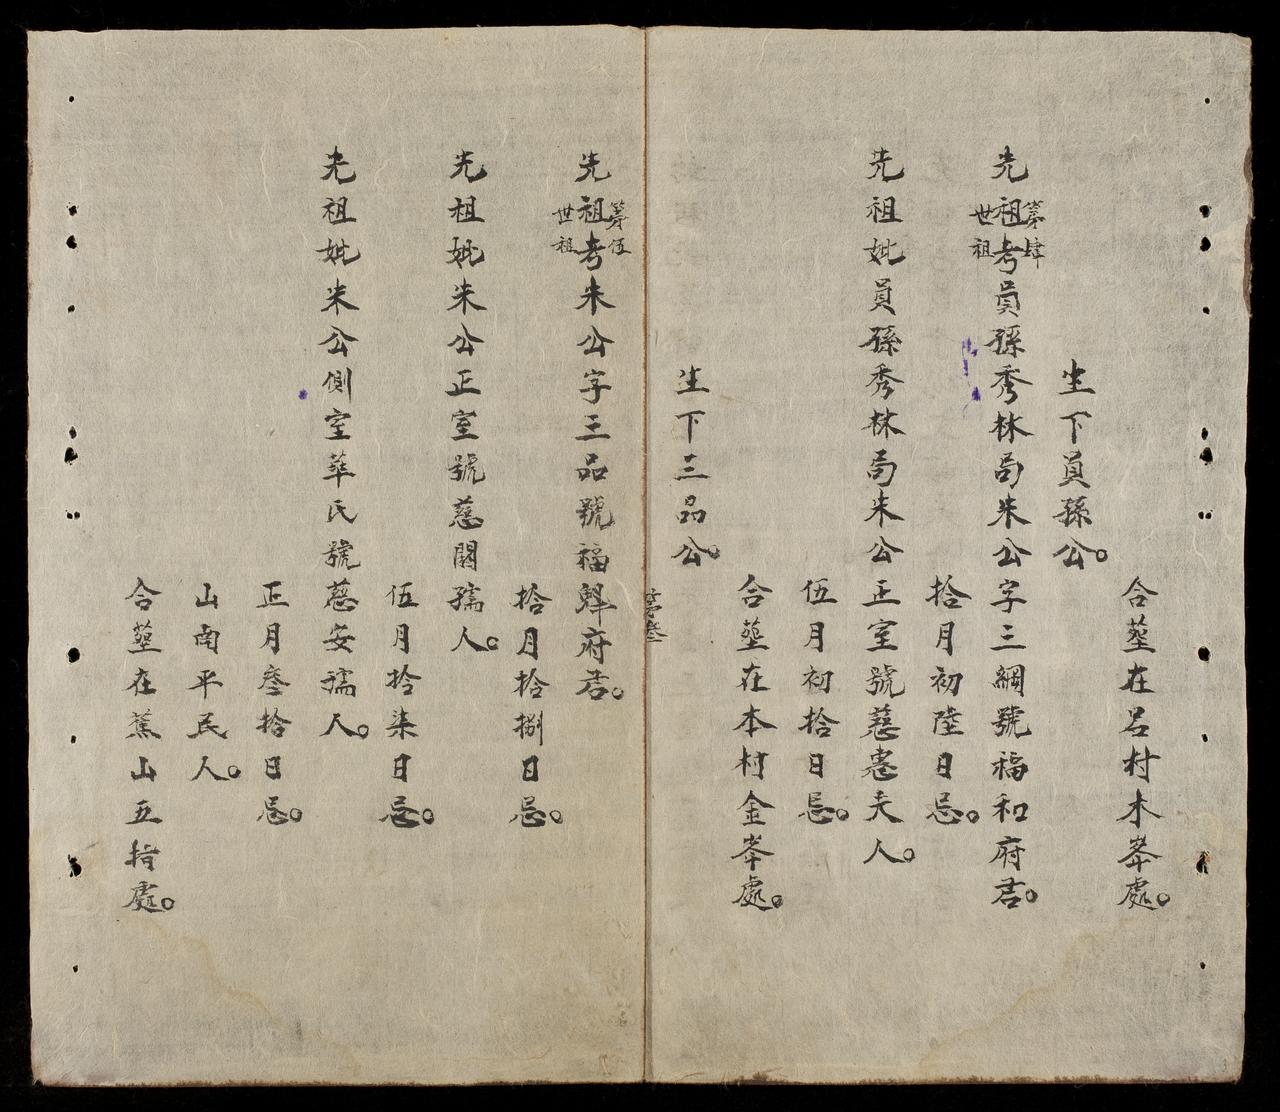 合塟在呂村木峯處。
生下員孫公。
第肆
先祖考員孫秀林局朱公字三綱號福和府君。
世祖
拾月初陸日忌。
先祖妣員孫秀林局朱公正室號慈惠夫人。
伍月初拾日忌。
合塟在本村金峯處。
生下三品公。
第叁
第伍
先祖考朱公字三品號福府君。
世祖
拾月拾捌日忌。
先祖妣朱公正室號慈閑孺人。
伍月拾柒日忌。
先祖妣朱公側室華氏號慈安孺人。
正月叁拾日忌。
山南平民人。
合塟在蕉山五指處。